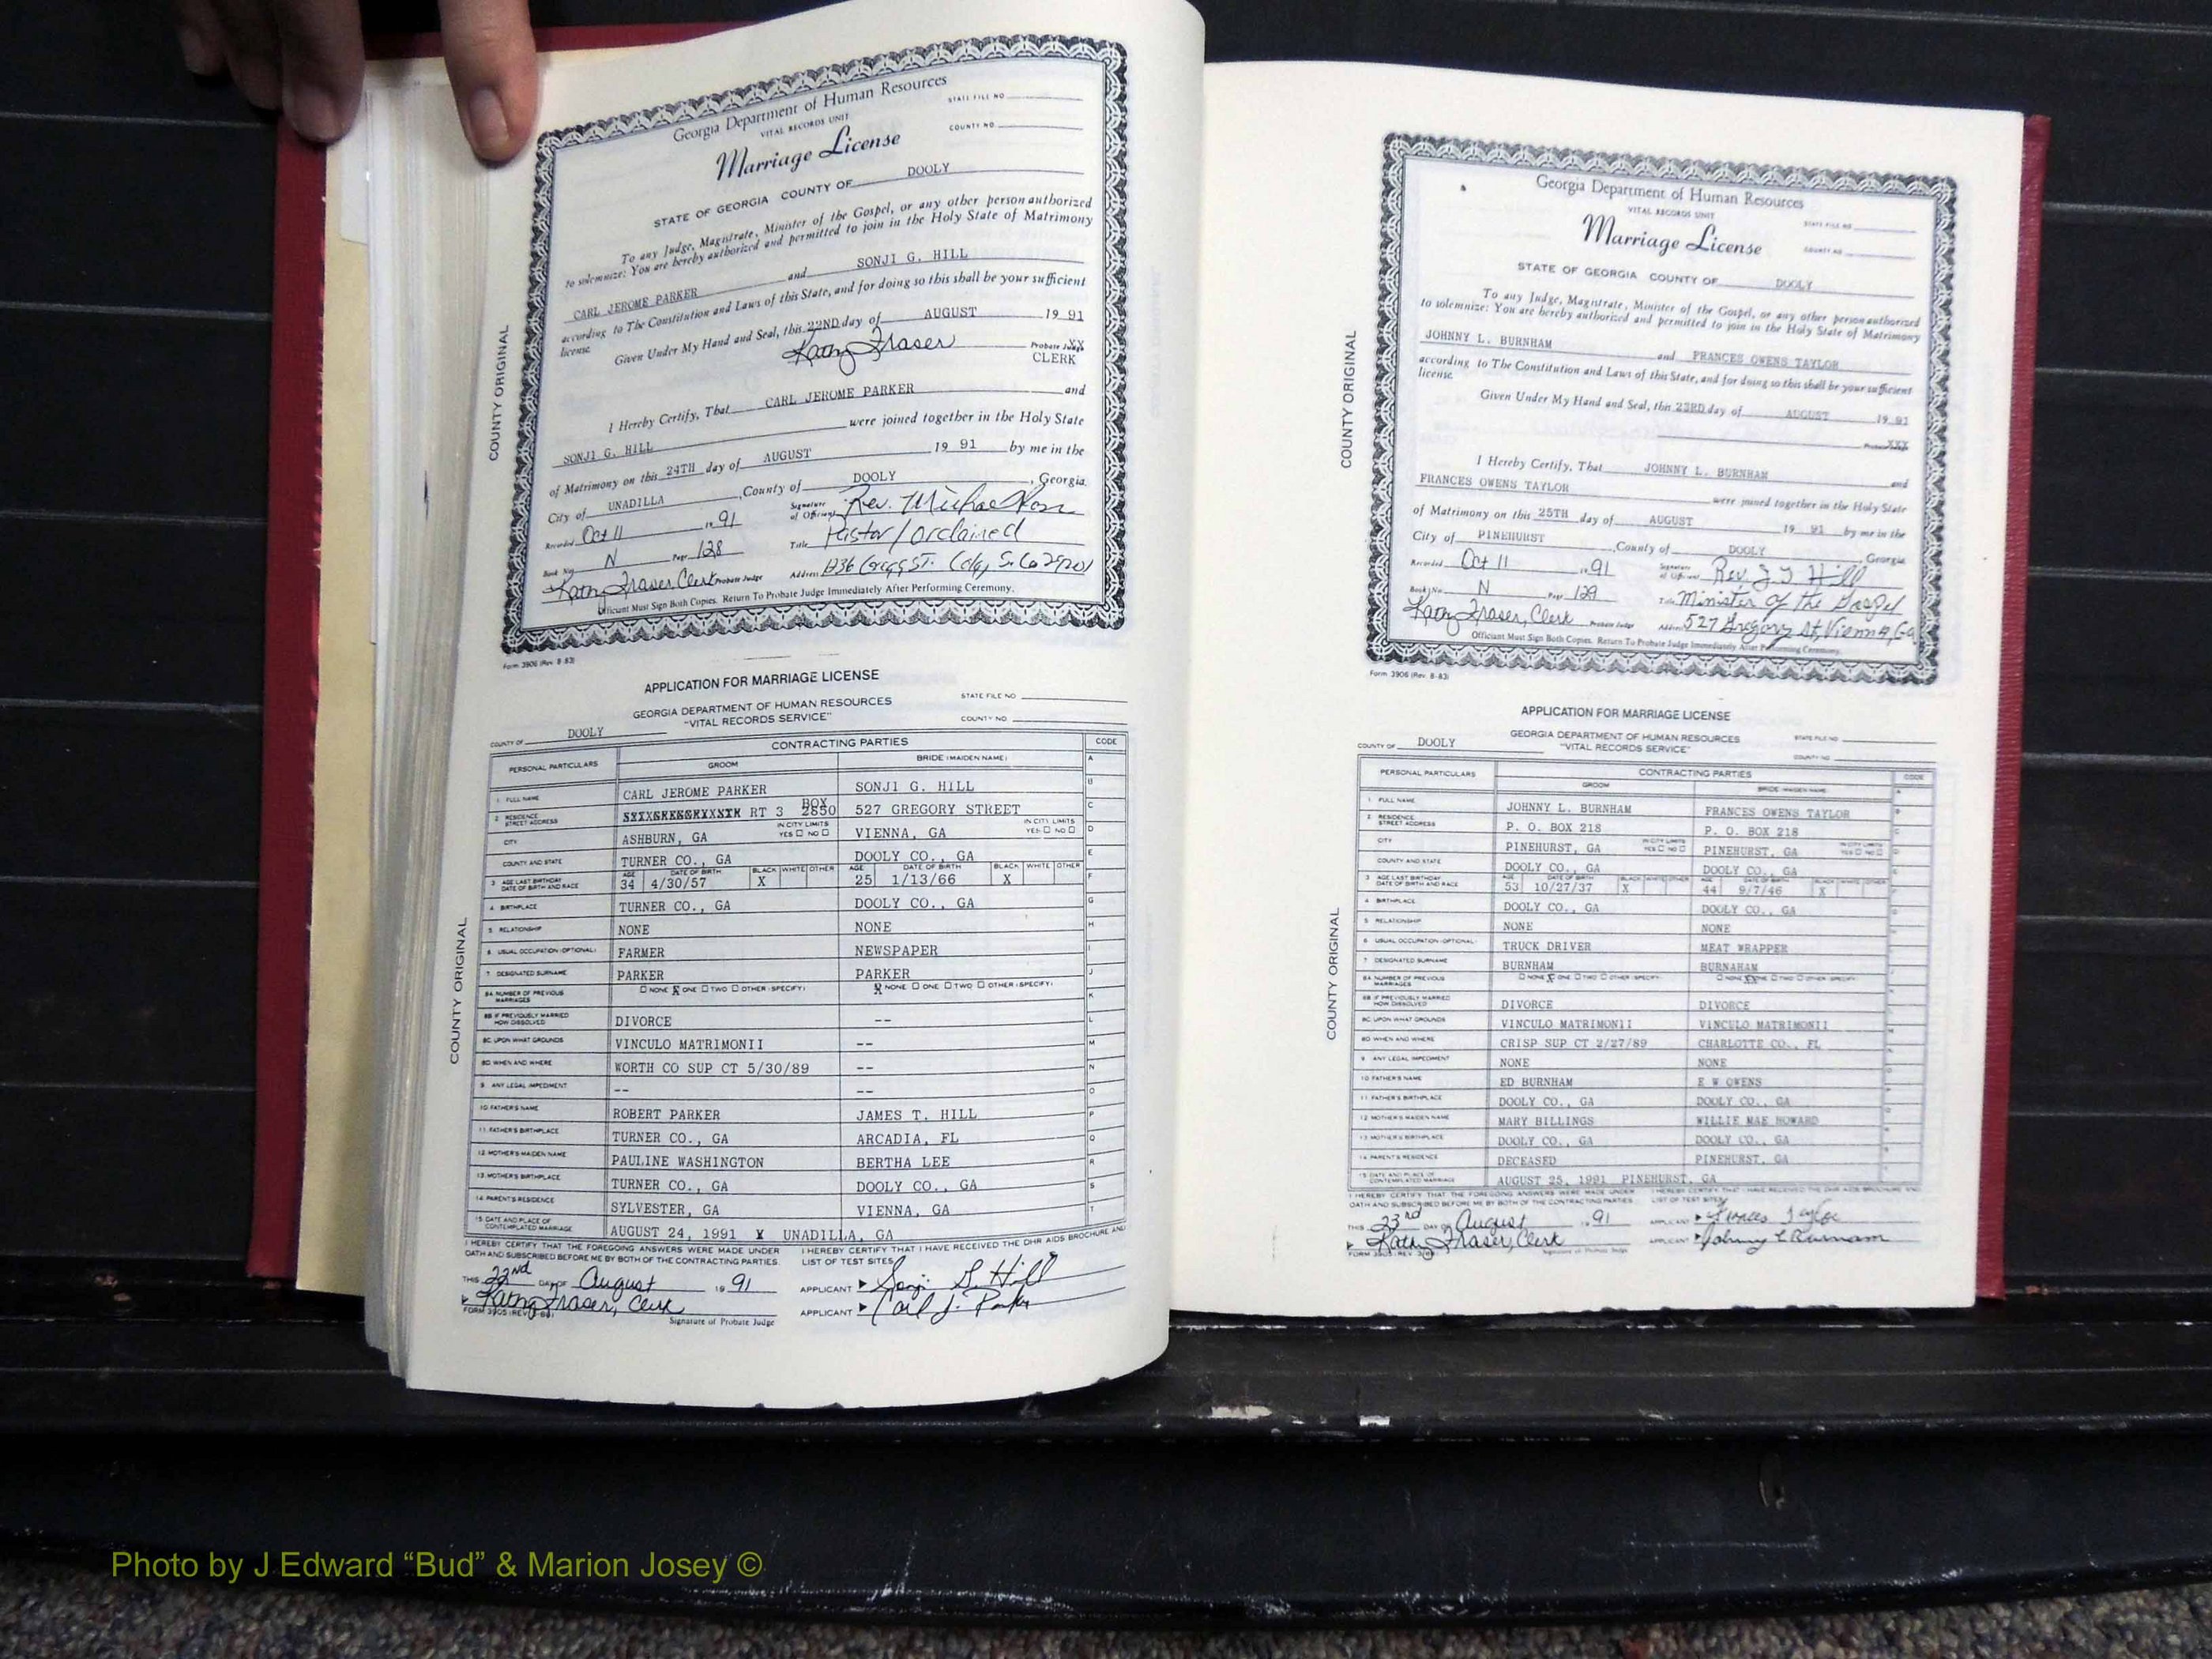 Georgia Department of Human Resources
VITAL RECORDS UNIT
STATE FILE NO
COUNTY NO
Marriage License
STATE OF GEORGIA COUNTY OF DOOLY
To any Judge, Magistrate, Minister of the Gospel, or any other person authorized
to solemnize: You are hereby authorized and permitted to join in the Holy State of Matrimony
CARL JEROME PARKER and SONJI G. HILL
according to The Constitution and Laws of this State, and for doing so this shall be your sufficient
license.
Given Under My Hand and Seal, this 22ND day of AUGUST 19 91
Kathy Fraser Probate Judge XX
CLERK
I Hereby Certify, That CARL JEROME PARKER and
SONJI G. HILL were joined together in the Holy State
of Matrimony on this 24TH day of AUGUST 19 91 by me in the
City of UNADILLA, County of DOOLY, Georgia.
Recorded Oct 11 19 91 Signature of Officiant Rev. Michael
Book No. N Page 128 Title Pastor/ordained
Kathy Fraser Clerk Probate Judge Address
Officiant Must Sign Both Copies. Return To Probate Judge Immediately After Performing Ceremony.
COUNTY ORIGINAL
Form 3906 (Rev. 8-83)
APPLICATION FOR MARRIAGE LICENSE
GEORGIA DEPARTMENT OF HUMAN RESOURCES
"VITAL RECORDS SERVICE"
STATE FILE NO
COUNTY NO
COUNTY OF DOOLY
PERSONAL PARTICULARS CONTRACTING PARTIES CODE
GROOM BRIDE (MAIDEN NAME) A
1 FULL NAME CARL JEROME PARKER SONJI G. HILL B
2 RESIDENCE STREET ADDRESS RT 3 BOX 2850 527 GREGORY STREET C
CITY ASHBURN, GA IN CITY LIMITS YES NO VIENNA, GA IN CITY LIMITS YES NO D
COUNTY AND STATE TURNER CO., GA DOOLY CO., GA E
3 AGE LAST BIRTHDAY DATE OF BIRTH AND RACE AGE 34 DATE OF BIRTH 4/30/57 BLACK X WHITE OTHER AGE 25 DATE OF BIRTH 1/13/66 BLACK X WHITE OTHER F
4 BIRTHPLACE TURNER CO., GA DOOLY CO., GA G
5 RELATIONSHIP NONE NONE H
6 USUAL OCCUPATION (OPTIONAL) FARMER NEWSPAPER I
7 DESIGNATED SURNAME PARKER PARKER J
8A NUMBER OF PREVIOUS MARRIAGES NONE X ONE TWO OTHER (SPECIFY) X NONE ONE TWO OTHER (SPECIFY) K
8B IF PREVIOUSLY MARRIED HOW DISSOLVED DIVORCE -- L
8C UPON WHAT GROUNDS VINCULO MATRIMONII -- M
8D WHEN AND WHERE WORTH CO SUP CT 5/30/89 -- N
9 ANY LEGAL IMPEDIMENT -- -- O
10 FATHER'S NAME ROBERT PARKER JAMES T. HILL P
11 FATHER'S BIRTHPLACE TURNER CO., GA ARCADIA, FL Q
12 MOTHER'S MAIDEN NAME PAULINE WASHINGTON BERTHA LEE R
13 MOTHER'S BIRTHPLACE TURNER CO., GA DOOLY CO., GA S
14 PARENT'S RESIDENCE SYLVESTER, GA VIENNA, GA T
15 DATE AND PLACE OF CONTEMPLATED MARRIAGE AUGUST 24, 1991 X UNADILLA, GA
I HEREBY CERTIFY THAT THE FOREGOING ANSWERS WERE MADE UNDER
OATH AND SUBSCRIBED BEFORE ME BY BOTH OF THE CONTRACTING PARTIES.
I HEREBY CERTIFY THAT I HAVE RECEIVED THE DHR AIDS BROCHURE AND
LIST OF TEST SITES
THIS 22nd DAY OF August 19 91 APPLICANT Sonji G. Hill
Kathy Fraser, Clerk APPLICANT Carl J. Parker
Signature of Probate Judge
COUNTY ORIGINAL
Georgia Department of Human Resources
VITAL RECORDS UNIT
STATE FILE NO
Marriage License
COUNTY NO
STATE OF GEORGIA COUNTY OF DOOLY
To any Judge, Magistrate, Minister of the Gospel, or any other person authorized
to solemnize: You are hereby authorized and permitted to join in the Holy State of Matrimony
JOHNNY L. BURNHAM and FRANCES OWENS TAYLOR
according to The Constitution and Laws of this State, and for doing so this shall be your sufficient
license.
Given Under My Hand and Seal, this 23RD day of AUGUST 19 91
Probate Judge XXX
I Hereby Certify, That JOHNNY L. BURNHAM and
FRANCES OWENS TAYLOR were joined together in the Holy State
of Matrimony on this 25TH day of AUGUST 19 91 by me in the
City of PINEHURST, County of DOOLY, Georgia
Recorded Oct 11 19 91 Signature of Officiant Rev. J. T. Hill
Book No. N Page 129 Title Minister of the Gospel
Kathy Fraser, Clerk Probate Judge Address 527 Gregory St, Vienna, Ga
Officiant Must Sign Both Copies. Return To Probate Judge Immediately After Performing Ceremony.
COUNTY ORIGINAL
Form 3906 (Rev. 8-83)
APPLICATION FOR MARRIAGE LICENSE
GEORGIA DEPARTMENT OF HUMAN RESOURCES
"VITAL RECORDS SERVICE"
STATE FILE NO
COUNTY NO
COUNTY OF DOOLY
PERSONAL PARTICULARS CONTRACTING PARTIES CODE
GROOM BRIDE (MAIDEN NAME)
1 FULL NAME JOHNNY L. BURNHAM FRANCES OWENS TAYLOR
2 RESIDENCE STREET ADDRESS P. O. BOX 218 P. O. BOX 218
CITY PINEHURST, GA IN CITY LIMITS YES NO PINEHURST, GA IN CITY LIMITS YES NO
COUNTY AND STATE DOOLY CO., GA DOOLY CO., GA
3 AGE LAST BIRTHDAY DATE OF BIRTH AND RACE 53 10/27/37 X 44 9/7/46 X
4 BIRTHPLACE DOOLY CO., GA DOOLY CO., GA
5 RELATIONSHIP NONE NONE
6 USUAL OCCUPATION (OPTIONAL) TRUCK DRIVER MEAT WRAPPER
7 DESIGNATED SURNAME BURNHAM BURNAHAM
8A NUMBER OF PREVIOUS MARRIAGES NONE X ONE TWO OTHER (SPECIFY) NONE XX ONE TWO OTHER (SPECIFY)
8B IF PREVIOUSLY MARRIED HOW DISSOLVED DIVORCE DIVORCE
8C UPON WHAT GROUNDS VINCULO MATRIMONII VINCULO MATRIMONII
8D WHEN AND WHERE CRISP SUP CT 2/27/89 CHARLOTTE CO., FL
9 ANY LEGAL IMPEDIMENT NONE NONE
10 FATHER'S NAME ED BURNHAM E W OWENS
11 FATHER'S BIRTHPLACE DOOLY CO., GA DOOLY CO., GA
12 MOTHER'S MAIDEN NAME MARY BILLINGS WILLIE MAE HOWARD
13 MOTHER'S BIRTHPLACE DOOLY CO., GA DOOLY CO., GA
14 PARENT'S RESIDENCE DECEASED PINEHURST, GA
15 DATE AND PLACE OF CONTEMPLATED MARRIAGE AUGUST 25, 1991 PINEHURST, GA
I HEREBY CERTIFY THAT THE FOREGOING ANSWERS WERE MADE UNDER
OATH AND SUBSCRIBED BEFORE ME BY BOTH OF THE CONTRACTING PARTIES
I HEREBY CERTIFY THAT I HAVE RECEIVED THE DHR AIDS BROCHURE AND
LIST OF TEST SITES
THIS 23rd DAY OF August 19 91 APPLICANT Frances Taylor
Kathy Fraser, Clerk APPLICANT Johnny L Burnam
Signature of Probate Judge
COUNTY ORIGINAL
Photo by J Edward “Bud” & Marion Josey ©